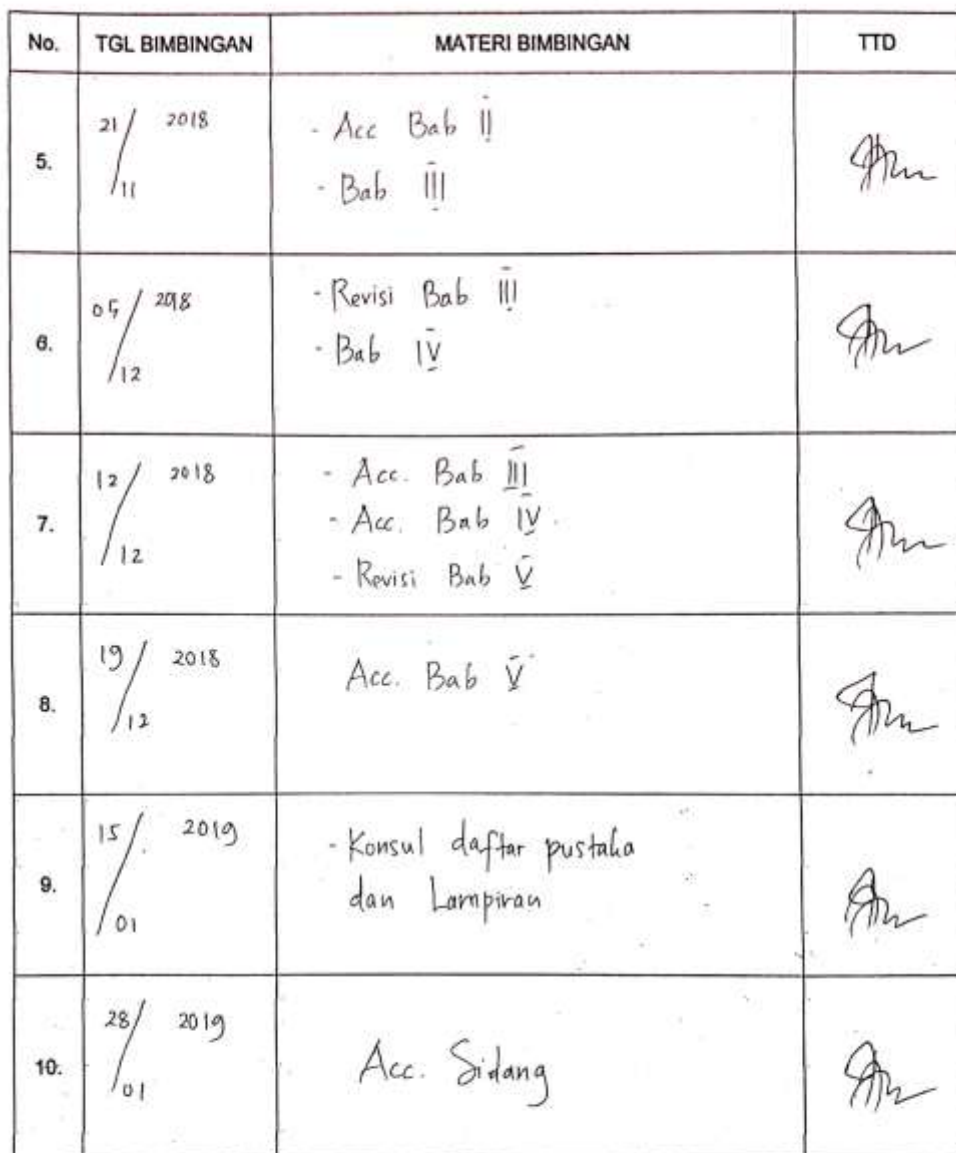 No. TGL BIMBINGAN MATERI BIMBINGAN TTD
5. 21/11 2018
- Acc Bab II
- Bab III
6. 05/12 2018
- Revisi Bab III
- Bab IV
7. 12/12 2018
- Acc. Bab III
- Acc. Bab IV
- Revisi Bab V
8. 19/12 2018
Acc. Bab V
9. 15/01 2019
- Konsul daftar pustaka
dan Lampiran
10. 28/01 2019
Acc. Sidang